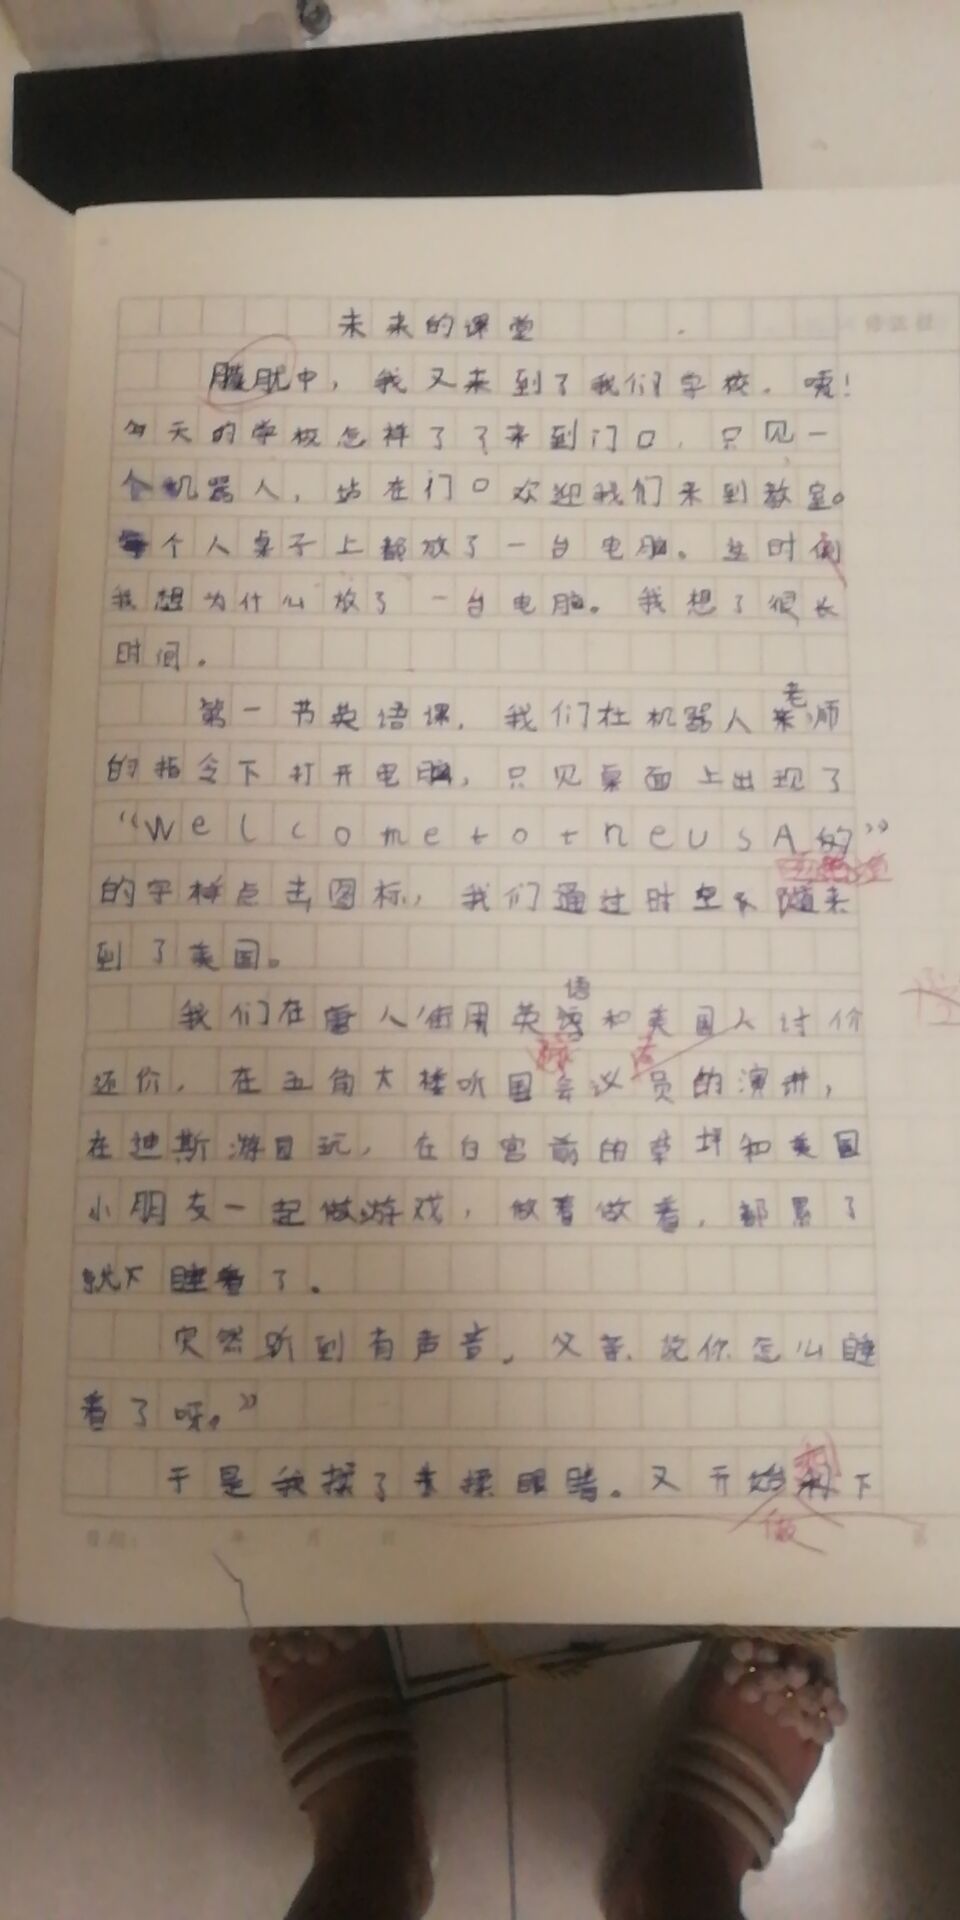 未来的课堂
朦胧中，我又来到了我们学校。噫！
今天的学校怎样了？来到门口，只见一
个机器人，站在门口欢迎我们来到教室。
每个人桌子上都放了一台电脑。当时
我想为什么放了一台电脑。我想了很长
时间。
第一节英语课，我们在机器人老师
的指令下打开电脑，只见桌面上出现了
“WelcometotneusA的”
的字样点击图标，我们通过时空隧来
到了美国。
我们在唐人街用英语和美国人讨价
还价，在五角大楼听国会议员的演讲，
在迪斯游目玩，在白宫前的草坪和美国
小朋友一起做游戏，做着做着，都累了
就下睡着了。
突然听到有声音，父亲说你怎么睡
着了呀。”
于是我揉了柔揉眼睛。又开始 下
做